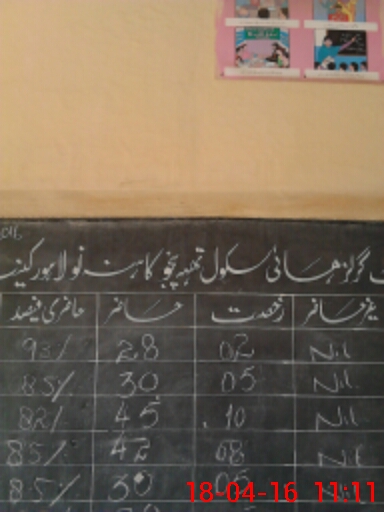 گرلز ہائی سکول تھیہ پنجو کاہنہ نو لاہور کینٹ
غیر حاضر رخصت حاضر حاضری فیصد
Nil 02 28 93%
Nil 05 30 85%
Nil 10 45 82%
Nil 08 42 85%
Nil 05 30 85%
18-04-16 11:11